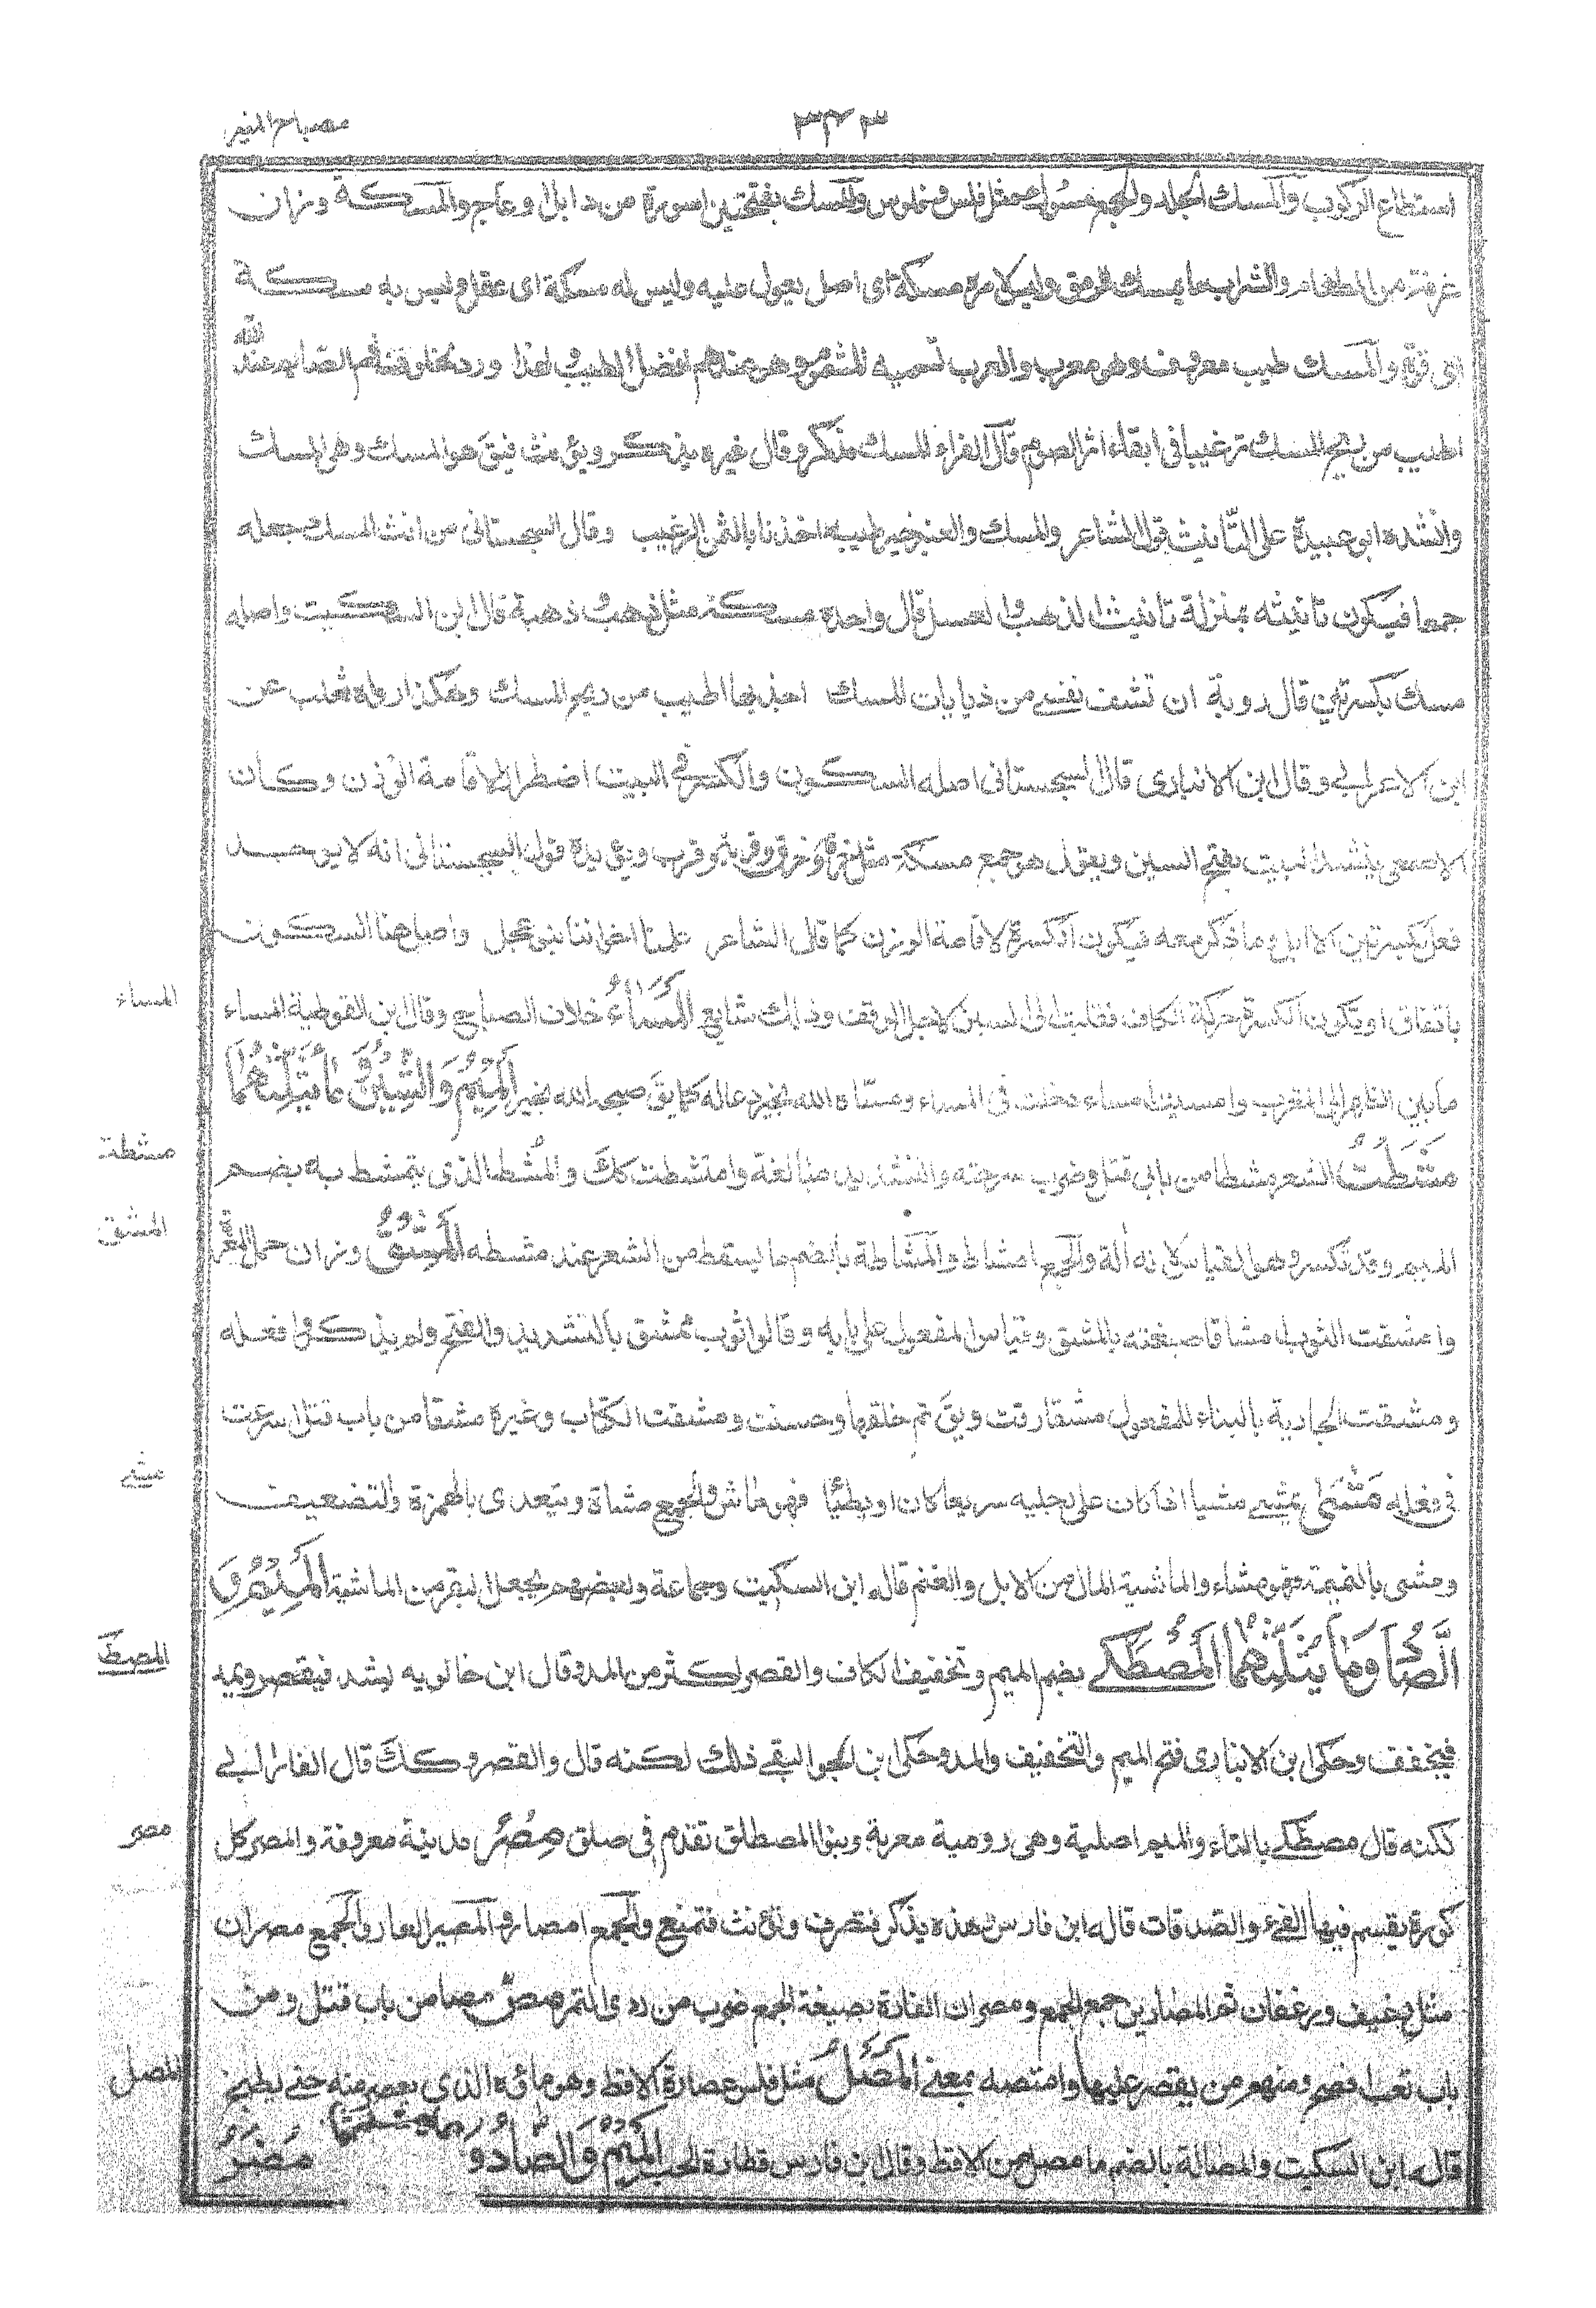 مصباح المنير
٣٤٣
استطاع الركوب والمسك الجلد والجمع مسوك مثل فلس وفلوس والمسك بفتحتين اسورة من ذبل وعاج والمسكة وزان
غرفة من الطعام والشراب ما يمسك الرمق وليس لامره مسكة اى اصل يعول عليه وليس له مسكة اى عقل وليس به مسكة
اى قوة والمسك طيب معروف وهو معرب والعرب تسميه المشموم وهو عندهم افضل الطيب ولهذا ورد لخلوف فم الصايم عند الله
اطيب من ريح المسك ترغيبا فى ابقاء اثر الصوم قال الفراء المسك مذكر وقال غيره يذكر ويؤنث فيق هو المسك وهى المسك
وانشد ابو عبيدة على التأنيث قول الشاعر والمسك والعنبر خير طيب اخذتا بالثمن الرغيب وقال السجستانى من انث المسك جعله
جمعا فيكون تانيثه بمنزلة تانيث الذهب والعسل قال واحده مسكة مثل ذهب وذهبة قال ابن السكيت واصله
مسك بكسرتين قال روبة ان تشف نفسى من ذبابات المسك احذ بها اطيب من ريح المسك وهكذا رواه ثعلب عن
ابن الاعرابى وقال ابن الانبارى قال السجستانى اصله السكون والكسر فى البيت اضطرار لاقامة الوزن وكان
الاصمعى ينشد البيت بفتح السين ويقول هو جمع مسكة مثل خرقة وخرق وقربة وقرب ويؤيده قول السجستانى انه لا يوجد
فعل بكسرتين الا ابل وما ذكر معه فيكون الكسرة لاقامة الوزن كما قال الشاعر علمنا اخواننا بنو عجل واصل هنا السكون
باتفاق او يكون الكسرة حركة الكاف فقلبت الى السين لاجل الوقف وذلك شايع المساء خلاف الصباح وقال ابن القوطية المساء
ما بين الظهر الى المغرب وامسيت امساء دخلت فى المساء ومساه الله بخير دعا له كما يق صبحه الله بخير الميم والشين وما يثلثهما
مشطت الشعر مشطا من بابى قتل وضرب سرحته والتشديد مبالغة وامتشطت كك والمشط الذى يتمشط به بضم
الميم وقد تكسر وهو القياس لانه آلة والجمع امشاط والمشاطة بالضم ما يسقط من الشعر عند مشطه المشق وزان حمل المغرة
وامشقت الثوب امشاقا صبغته بالمشق وقياس المفعول على بابه وقالوا ثوب ممشق بالتشديد والفتح ولم يذكروا فعله
ومشقت الجارية بالبناء للمفعول مشقا رقت ويق تم خلقها وحسنت ومشقت الكتاب وغيره مشقا من باب قتل اسرعت
فى فعله مشى يمشى مشيا اذا كان على رجليه سريعا كان او بطيئا فهو ماش والجمع مشاة ويتعدى بالهمزة والتضعيف
ومشى بالنميمة فهو مشاء والماشية المال من الابل والغنم قاله ابن السكيت وجماعة وبعضهم يجعل البقر من الماشية الميم و
الصاد وما يثلثهما المصطكى بضم الميم وتخفيف الكاف والقصر اكثر من المد وقال ابن خالويه يشدد فيقصر ويمد
فيخفف وحكى ابن الانبارى فتح الميم والتخفيف والمد وحكى ابن الجواليقى ذلك لكنه قال والقصر وكك قال الفارابى
لكنه قال مصطكى بالتاء والميم اصلية وهى رومية معربة وبنو المصطلق تقدم فى صلق مصر مدينة معروفة والمصر كل
كورة يقسم فيها الفىء والصدقات قاله ابن فارس وهذه يذكر فتصرف وتؤنث فتمنع والجمع امصار والمصير المعاء والجمع مصران
مثل رغيف ورغفان ثم المصارين جمع الجمع ومصران الفارة بصيغة الجمع ضرب من ردى التمر مصه مصا من باب قتل ومن
باب تعب لغة ومنهم من يقتصر عليها وامتصه بمعنى المصل مثل فلس عصارة الاقط وهو ماؤه الذى يعصر منه حين يطبخ
قاله ابن السكيت والمصالة بالضم ما مصل من الاقط وقال ابن فارس قطارة الحب الميم والضاد وما يثلثهما مضر
المساء
مشطت
المشق
مشى
المصطكى
مصر
المصل